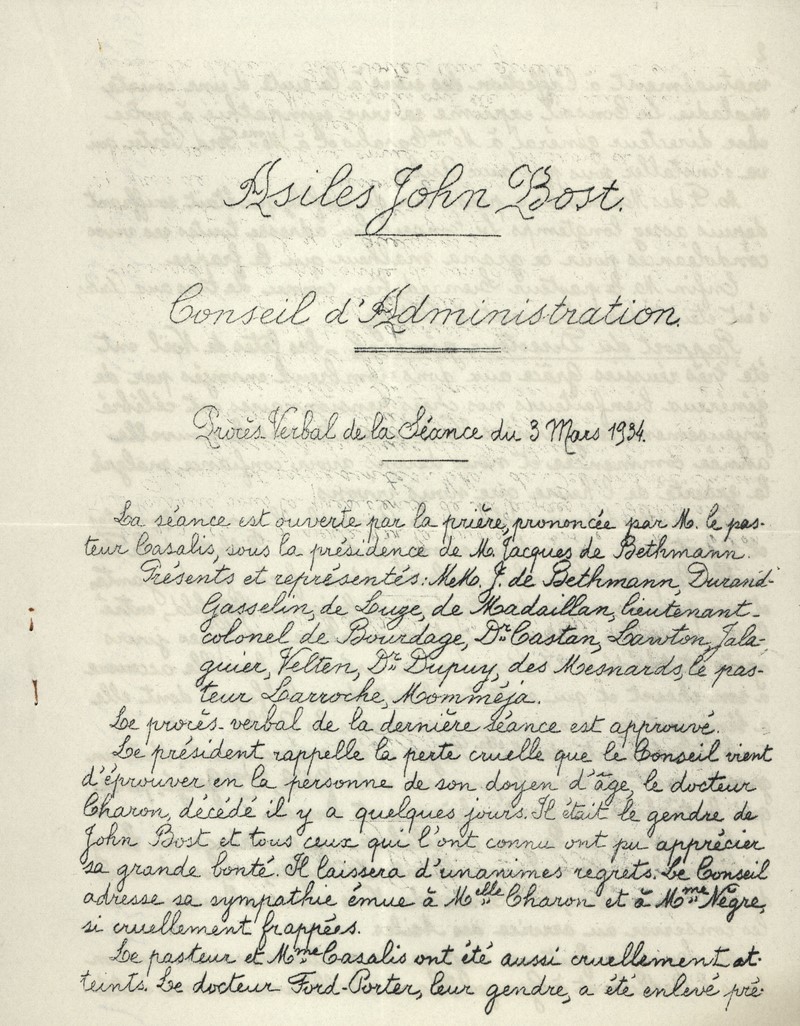 Asiles John Bost.
Conseil d'Administration.
Procès-Verbal de la Séance du 3 Mars 1934.
La séance est ouverte par la prière, prononcée par M. le pas-
teur Casalis, sous la présidence de M. Jacques de Bethmann.
Présents et représentés: M.M. J. de Bethmann, Durand-
Gasselin, de Luze, de Madaillan, lieutenant-
colonel de Bourdage, Dr. Castan, Lawton, Jala-
guier, Velten, Dr. Dupuy, des Mesnards, le pas-
teur Larroche, Momméja.
Le procès-verbal de la dernière séance est approuvé.
Le président rappelle la perte cruelle que le Conseil vient
d'éprouver en la personne de son doyen d'âge, le docteur
Charon, décédé il y a quelques jours. Il était le gendre de
John Bost et tous ceux qui l'ont connu ont pu apprécier
sa grande bonté. Il laissera d'unanimes regrets. Le Conseil
adresse sa sympathie émue à Melle Charon et à Mme Nègre,
si cruellement frappées.
Le pasteur et Mme Casalis ont été aussi cruellement at-
teints. Le docteur Ford-Porter, leur gendre, a été enlevé pré-